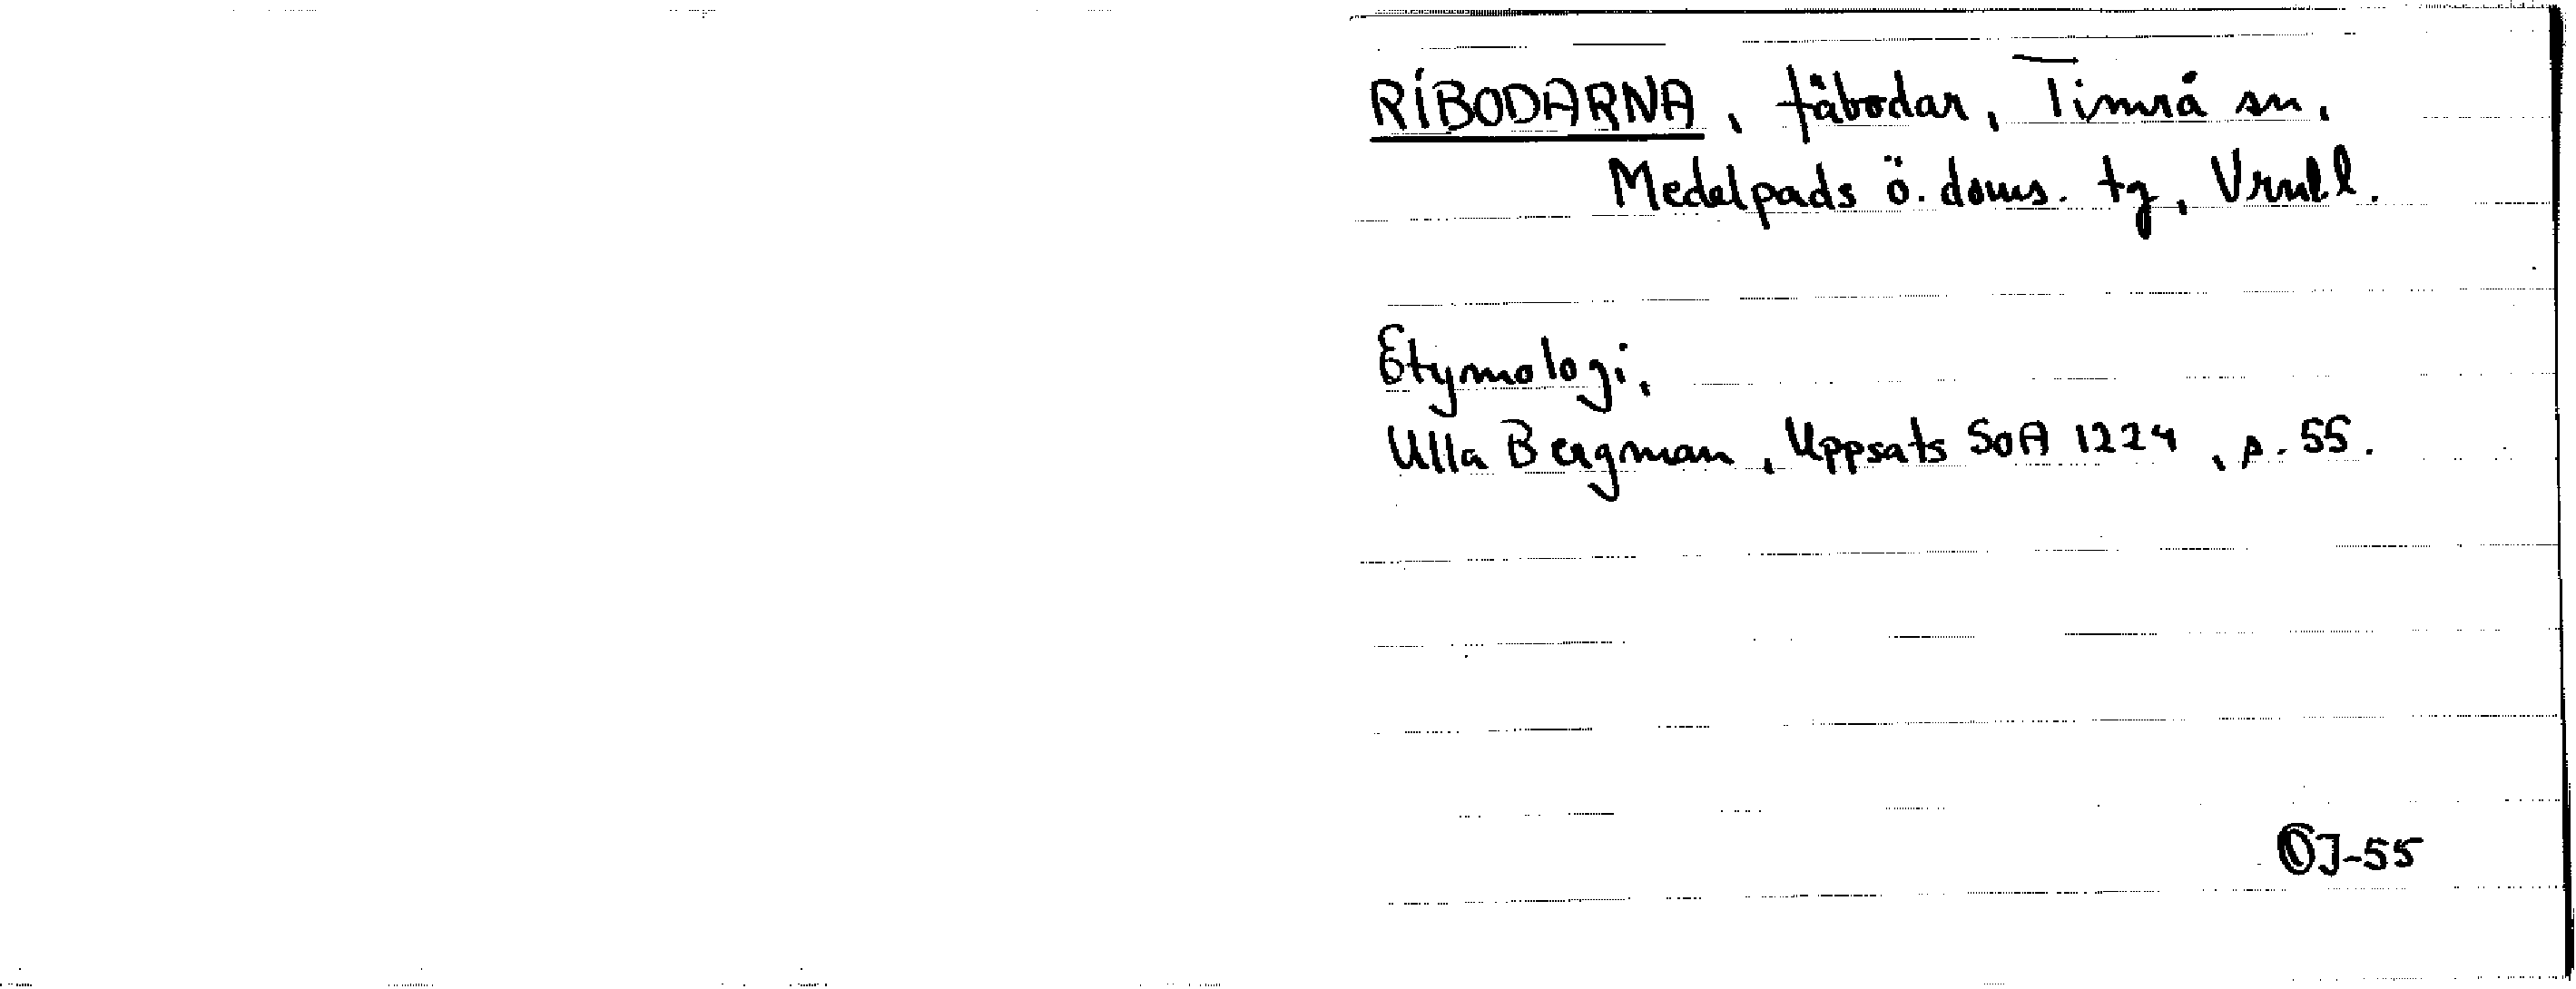 RIBODARNA, fäbodar, Timrå sn.
Medelpads ö. doms. tg, Vrnl l.
Etymologi.
Ulla Bergman, Uppsats SOA 1224, s. 55.
ÖJ-55